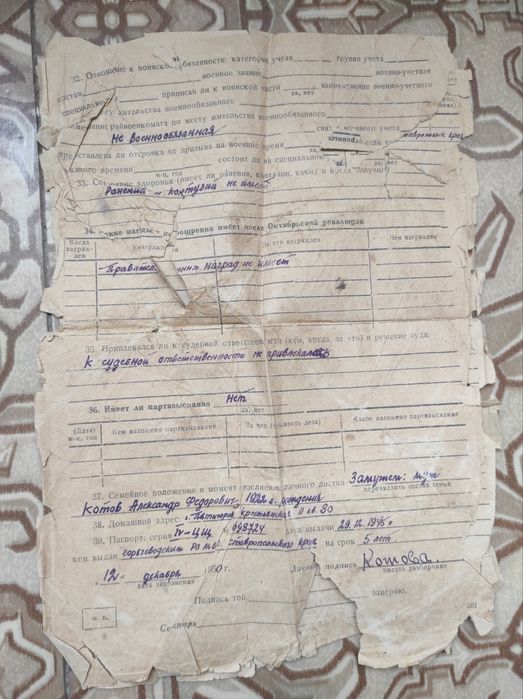 32. Отношение к воинской обязанности: категория учета группа учета
состав военное звание военно-учетная
специальность приписан ли к воинской части да, нет наименование военно-учетного
жительства военнообязанного
райвоенкомата по месту жительства военнообязанного
Не военнообязанная учета
ли отсрочка от призыва на военное время
времени состоит ли на специальном
33. здоровья (имеет ли ранения, контузии, какие и когда получил)
Ранений и контузии не имеет
34. Какие награды, поощрения имеет после Октябрьской революции
Когда награжден
За что награжден
Чем награжден
наград не имеет
35. Привлекался ли к судебной ответственности (кем, когда, за что) и решение суда:
К судебной ответственности не привлекалась
36. Имеет ли партвзыскания Нет
да, нет
(Дата) м-ц, год
Кем наложено партвзыскание
За что (сущность дела)
Какое наложено партвзыскание
37. Семейное положение в момент заполнения личного листка Замужем: муж
перечислить состав семьи
Котов Александр Федорович, 1922 г. рождения
38. Домашний адрес: г. Пятигорск, Крестьянская 11 кв. 80
39. Паспорт: серия IV-ЦЩ № 698724 дата выдачи 29.12.1945 г
кем выдан Ставропольского края на срок 5 лет.
"12" декабря 1950 г. Личная подпись Котова.
дата заполнения писать разборчиво
Подпись тов. заверяю.
Секретарь
м. п.